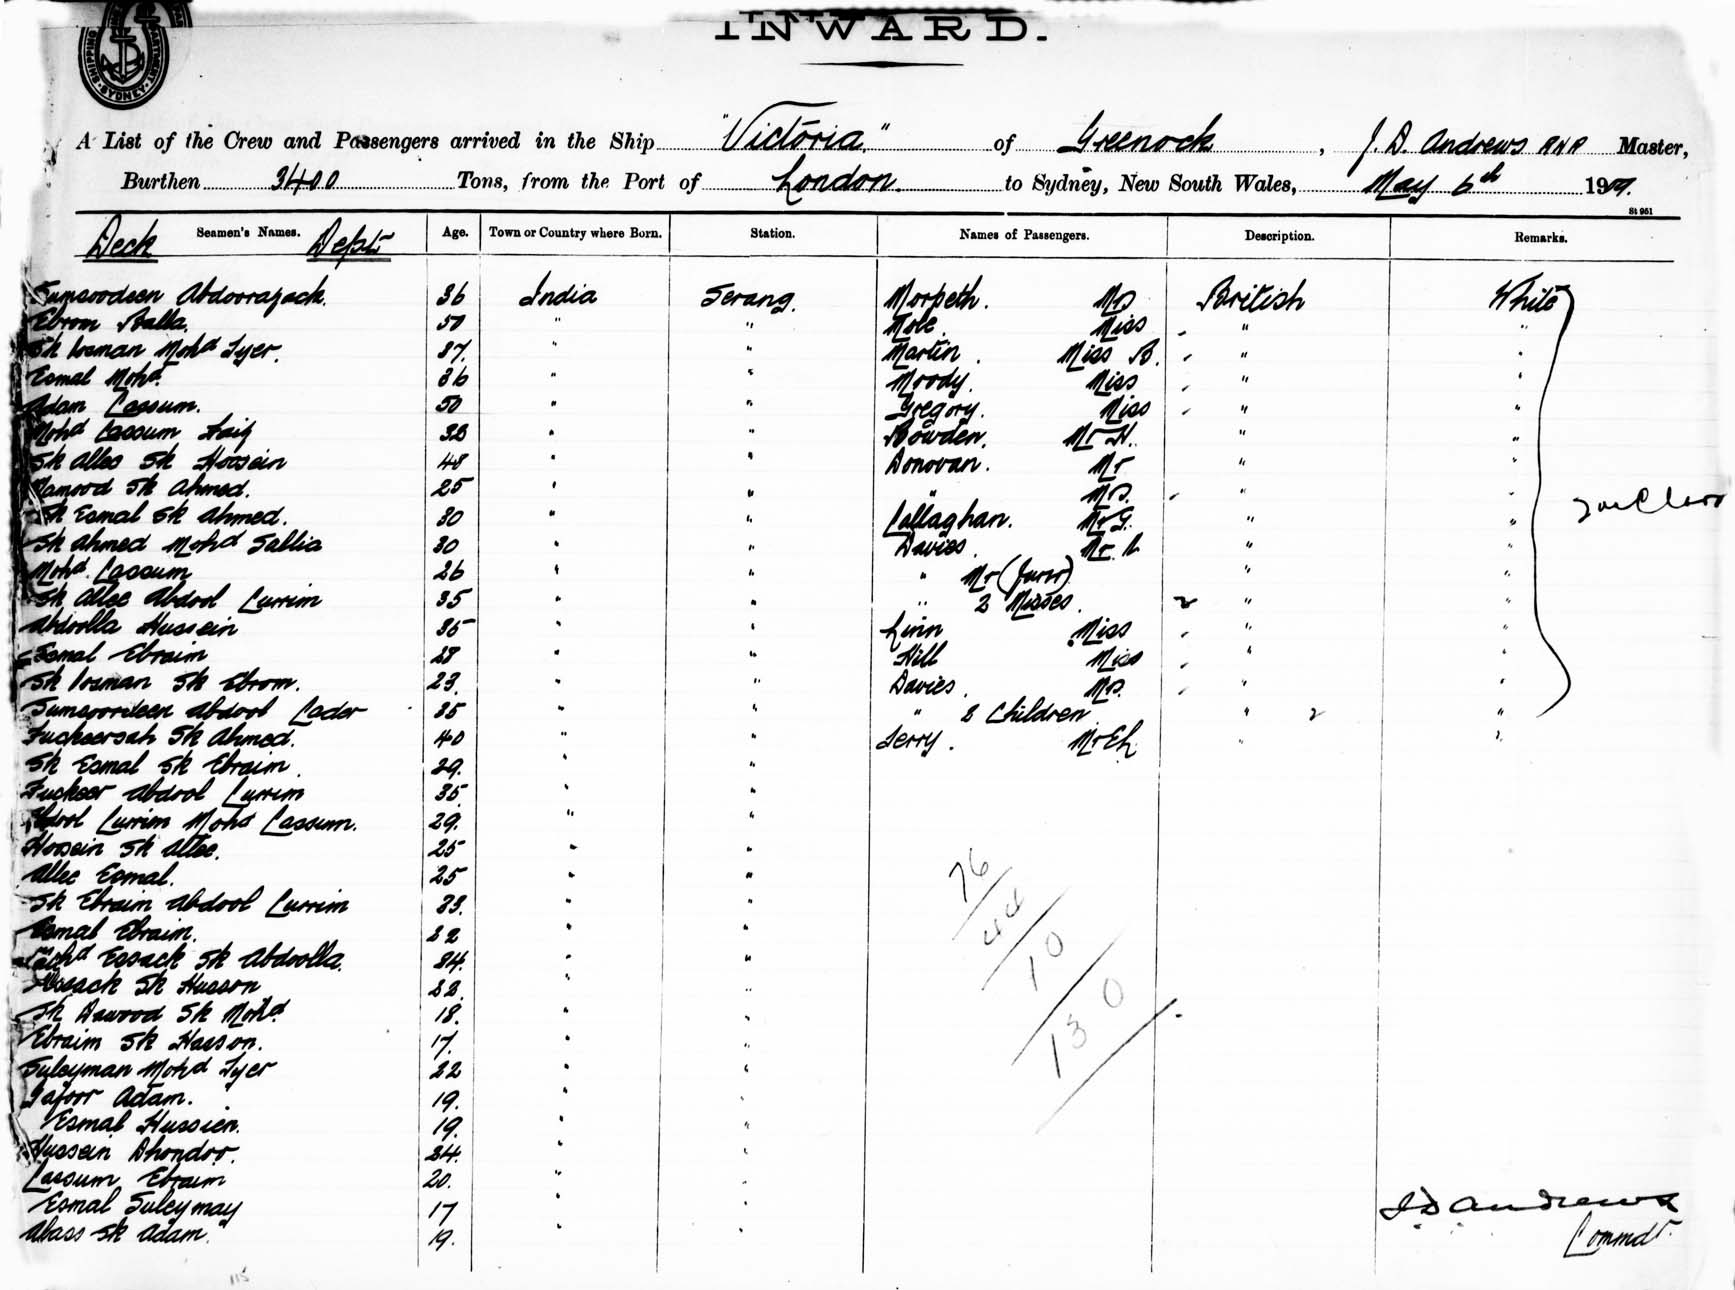 INWARD.
SHIPPING
SYDNEY
A List of the Crew and Passengers arrived in the Ship "Victoria" of Greenock, J. D. Andrews RNR Master,
Burthen 3400 Tons, from the Port of London to Sydney, New South Wales, May 6th 1909.
St 951
Deck Seamen's Names. Dept Age. Town or Country where Born. Station. Names of Passengers. Description. Remarks.
Sumsoodeen Abdoorazack. 36 India Serang. Morpeth. Mrs British White
Ebrom Balla. 50 " " Mole. Miss " "
Sk Mohd Iyer. 37. " " Martin. Miss B. " "
Esmal Mohd. 36 " " Moody. Miss " "
Adam Cassum. 50 " " Gregory. Miss " "
Mohd Cassum " " Bowden. Mr H. " "
Sk Allee Sk Hossein 48 " " Donovan. Mr " "
Sk Ahmed. 25 " " " Mrs. " "
Sk Esmal Sk Ahmed. 30 " " Callaghan. Mr G. " "
Sk Ahmed Mohd Sallia 30 " " Davies. Mr. " "
Mohd. Cassum 26 " " " Mr (Junr) " "
Sk Allee Abdool Currim 35 " " " 2 Misses. 2 " "
Abdoolla Hussein 35 " " Linn Miss " "
Esmal Ebraim 28 " " Hill Miss " "
Sk Sk Ebrom. 23. " " Davies. Mrs. " "
Sumsoordeen Abdool Cader 35 " " " Children " 2 "
Fuckeersah Sk Ahmed. 40 " " Terry. Mr " "
Sk Esmal Sk Ebraim. 29. " "
Fuckeer Abdool Currim 35. " "
Abdool Currim Mohd Cassum. 29. " "
Hossein Sk Allee. 25 " "
Allee Esmal. 25 " "
Sk Ebraim Abdool Currim 33. " "
Esmal Ebraim. 22 " "
Mohd Essack Sk Abdoolla. 34. " "
Essack Sk Husson 22. " "
Sk Dawood Sk Mohd. 18. " "
Ebraim Sk Hasson. 17. " "
Suleyman Mohd Iyer 22 " "
Gafoor Adam. 19. " "
Esmal Hussien. 19. " "
Hussein Dhondoo. 24. " "
Cassum Ebraim 20. " "
Esmal Suleymay 17 " "
Abass Sk Adam. 19. " "
76
44
10
130
J D Andrews
Commdr.
115